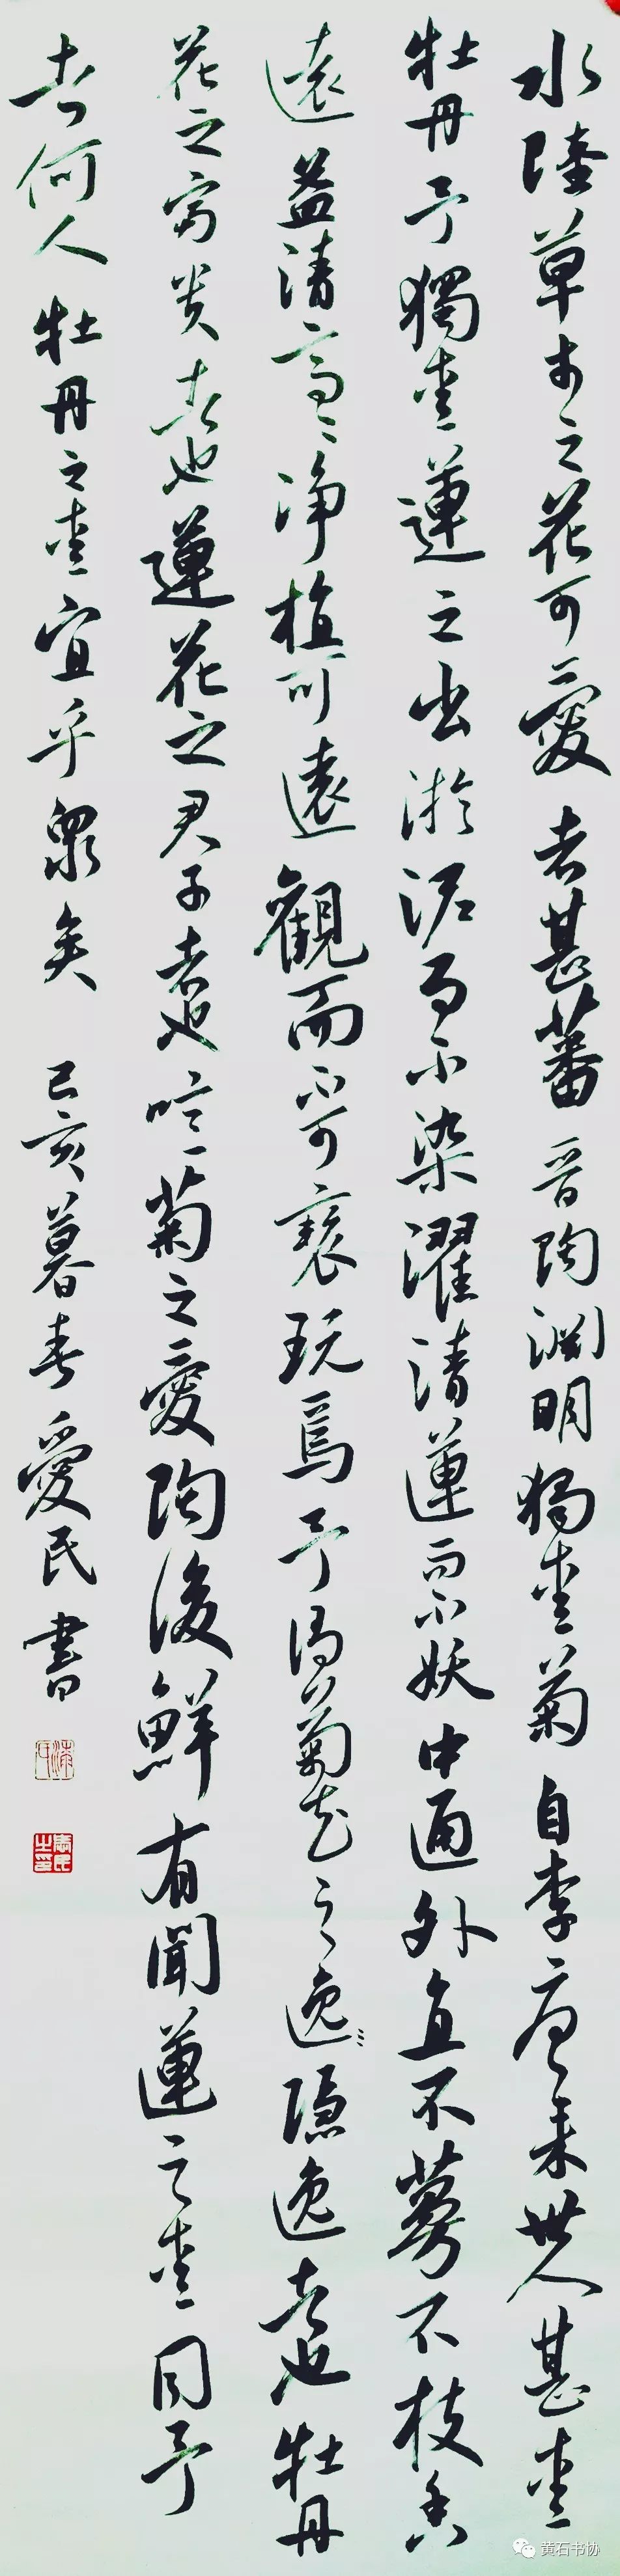 水陸草木之花可愛者甚蕃晋陶淵明獨爱菊自李唐来世人甚爱
牡丹予獨爱蓮之出淤泥而不染濯清蓮而不妖中通外直不蔓不枝香
遠益清亭亭净植可遠觀而不可褻玩焉予謂菊花之逸隱逸者也牡丹
花之富贵者也蓮花之君子者也噫菊之愛陶後鮮有聞蓮之爱同予
者何人牡丹之爱宜乎衆矣 己亥暮春愛民書
黄石书协